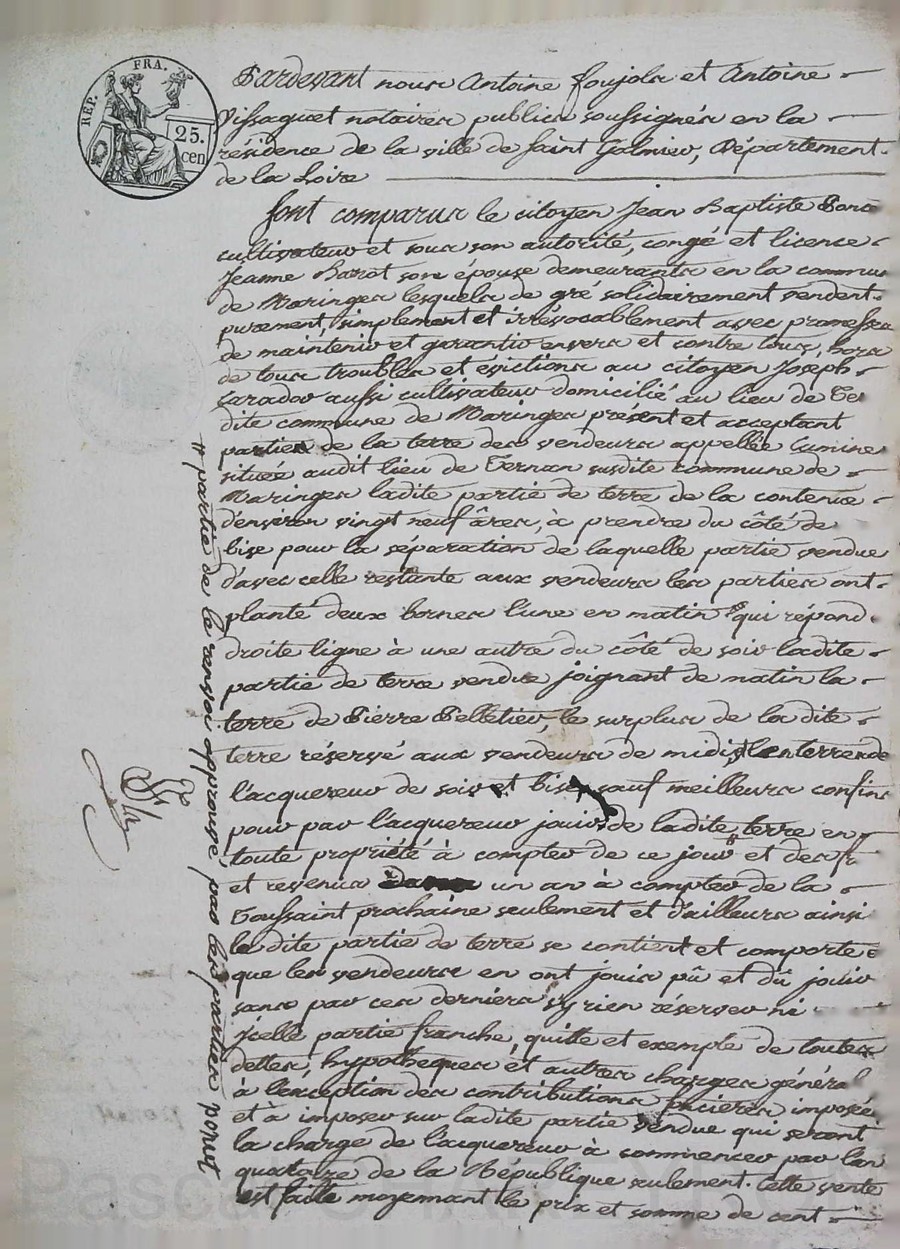 REP. FRA.
25.
cen
Pardevant nous Antoine Foujols et Antoine
Vissaguet notaires publics soussignés en la
résidence de la ville de Saint Galmier, Département
de la Loire
Sont comparus le citoyen Jean Baptiste
cultivateur et sous son autorité, congé et licence
Jeanne son épouse demeurants en la commu
de Maringes lesquels de gré solidairement vendent
purement, simplement et irrévocablement avec promesses
de maintenir et garantir envers et contre tous, hors
de tous troubles et évictions au citoyen Joseph
aussi cultivateur domicilié au lieu de
dite commune de Maringes présent et acceptant
parties de la terre des vendeurs appellée
située audit lieu de Ternan susdite commune de
Maringes ladite partie de terre de la contenue
d'environ vingt neuf âres, à prendre du côté de
bise pour la séparation de laquelle partie vendue
d'avec celle restante aux vendeurs les parties ont
planté deux bornes l'une en matin qui répond
droite ligne à une autre du côté de soir ladite
partie de terre vendue joignant de matin la
terre de Pierre Pelletier, le surplus de la dite
terre réservé aux vendeurs de midi,
l'acquereur de soir et bise sauf meilleurs confins
pour par l'acquereur jouir de ladite terre en
toute propriété à compter de ce jour et des
et revenus un an à compter de la
Toussaint prochaine seulement et d'ailleurs ainsi
la dite partie de terre se contient et comporte
que les vendeurs en ont jouis pû et dû jouir
sans par ces derniers s'y rien réserver ni
Icelle partie franche, quitte et exempte de toutes
dettes, hypotheques et autres charges général
à l'exception des contributions foncieres imposées
et à imposer sur ladite partie vendue qui seront
la charge de l'acquereur à commencer par l'an
quatorze de la République seulement. Cette vente
est faite moyennant le prix et somme de cent
# partie de le renvoi approuvé par les parties